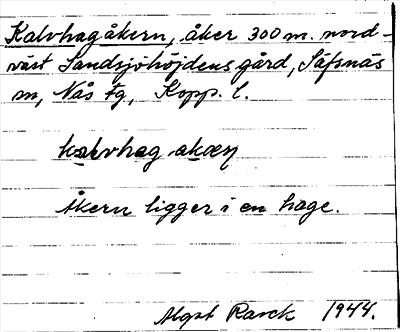 Kalvhagåkern, åker 300 m. nord-
väst Sandsjöhöjdens gård, Säfsnäs
sn, Nås fg, Kopp. l.
kalvhag
Åkern ligger i en hage.
Algot Rarck 1944.